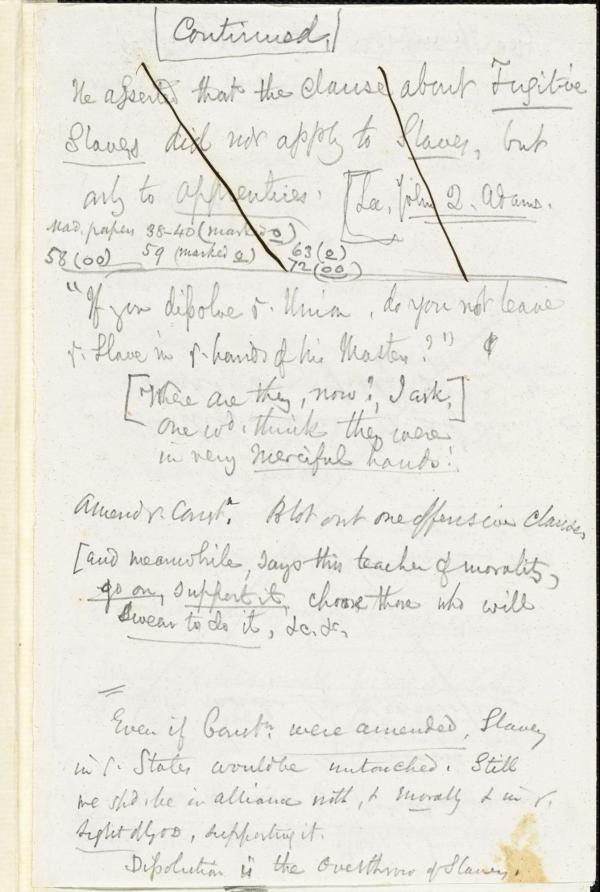 [Continued.]
He asserted that the clause about Fugitive
Slaves did not apply to Slaves, but
only to apprentices. [La. John Q. Adams.
Mad. papers 38-40 (marked o)
58 (oo) 59 (marked o) 63 (o)
72 (oo)
"If you dissolve ye. Union, do you not leave
ye. Slave in ye. hands of his Master?"
[Where are they, now?, I ask,]
one wd. think they were
in very merciful hands!
Amend ye. Constn. Blot out one offensive clause,
[and meanwhile, says this teacher of morality,
go on, support it, choose those who will
Swear to do it, &c. &c.
Even if Constn. were amended, Slavery
in ye. States would be untouched. Still
we shd. be in alliance with, & morally & in ye.
sight of God, supporting it.
Dissolution is the Overthrow of Slavery.